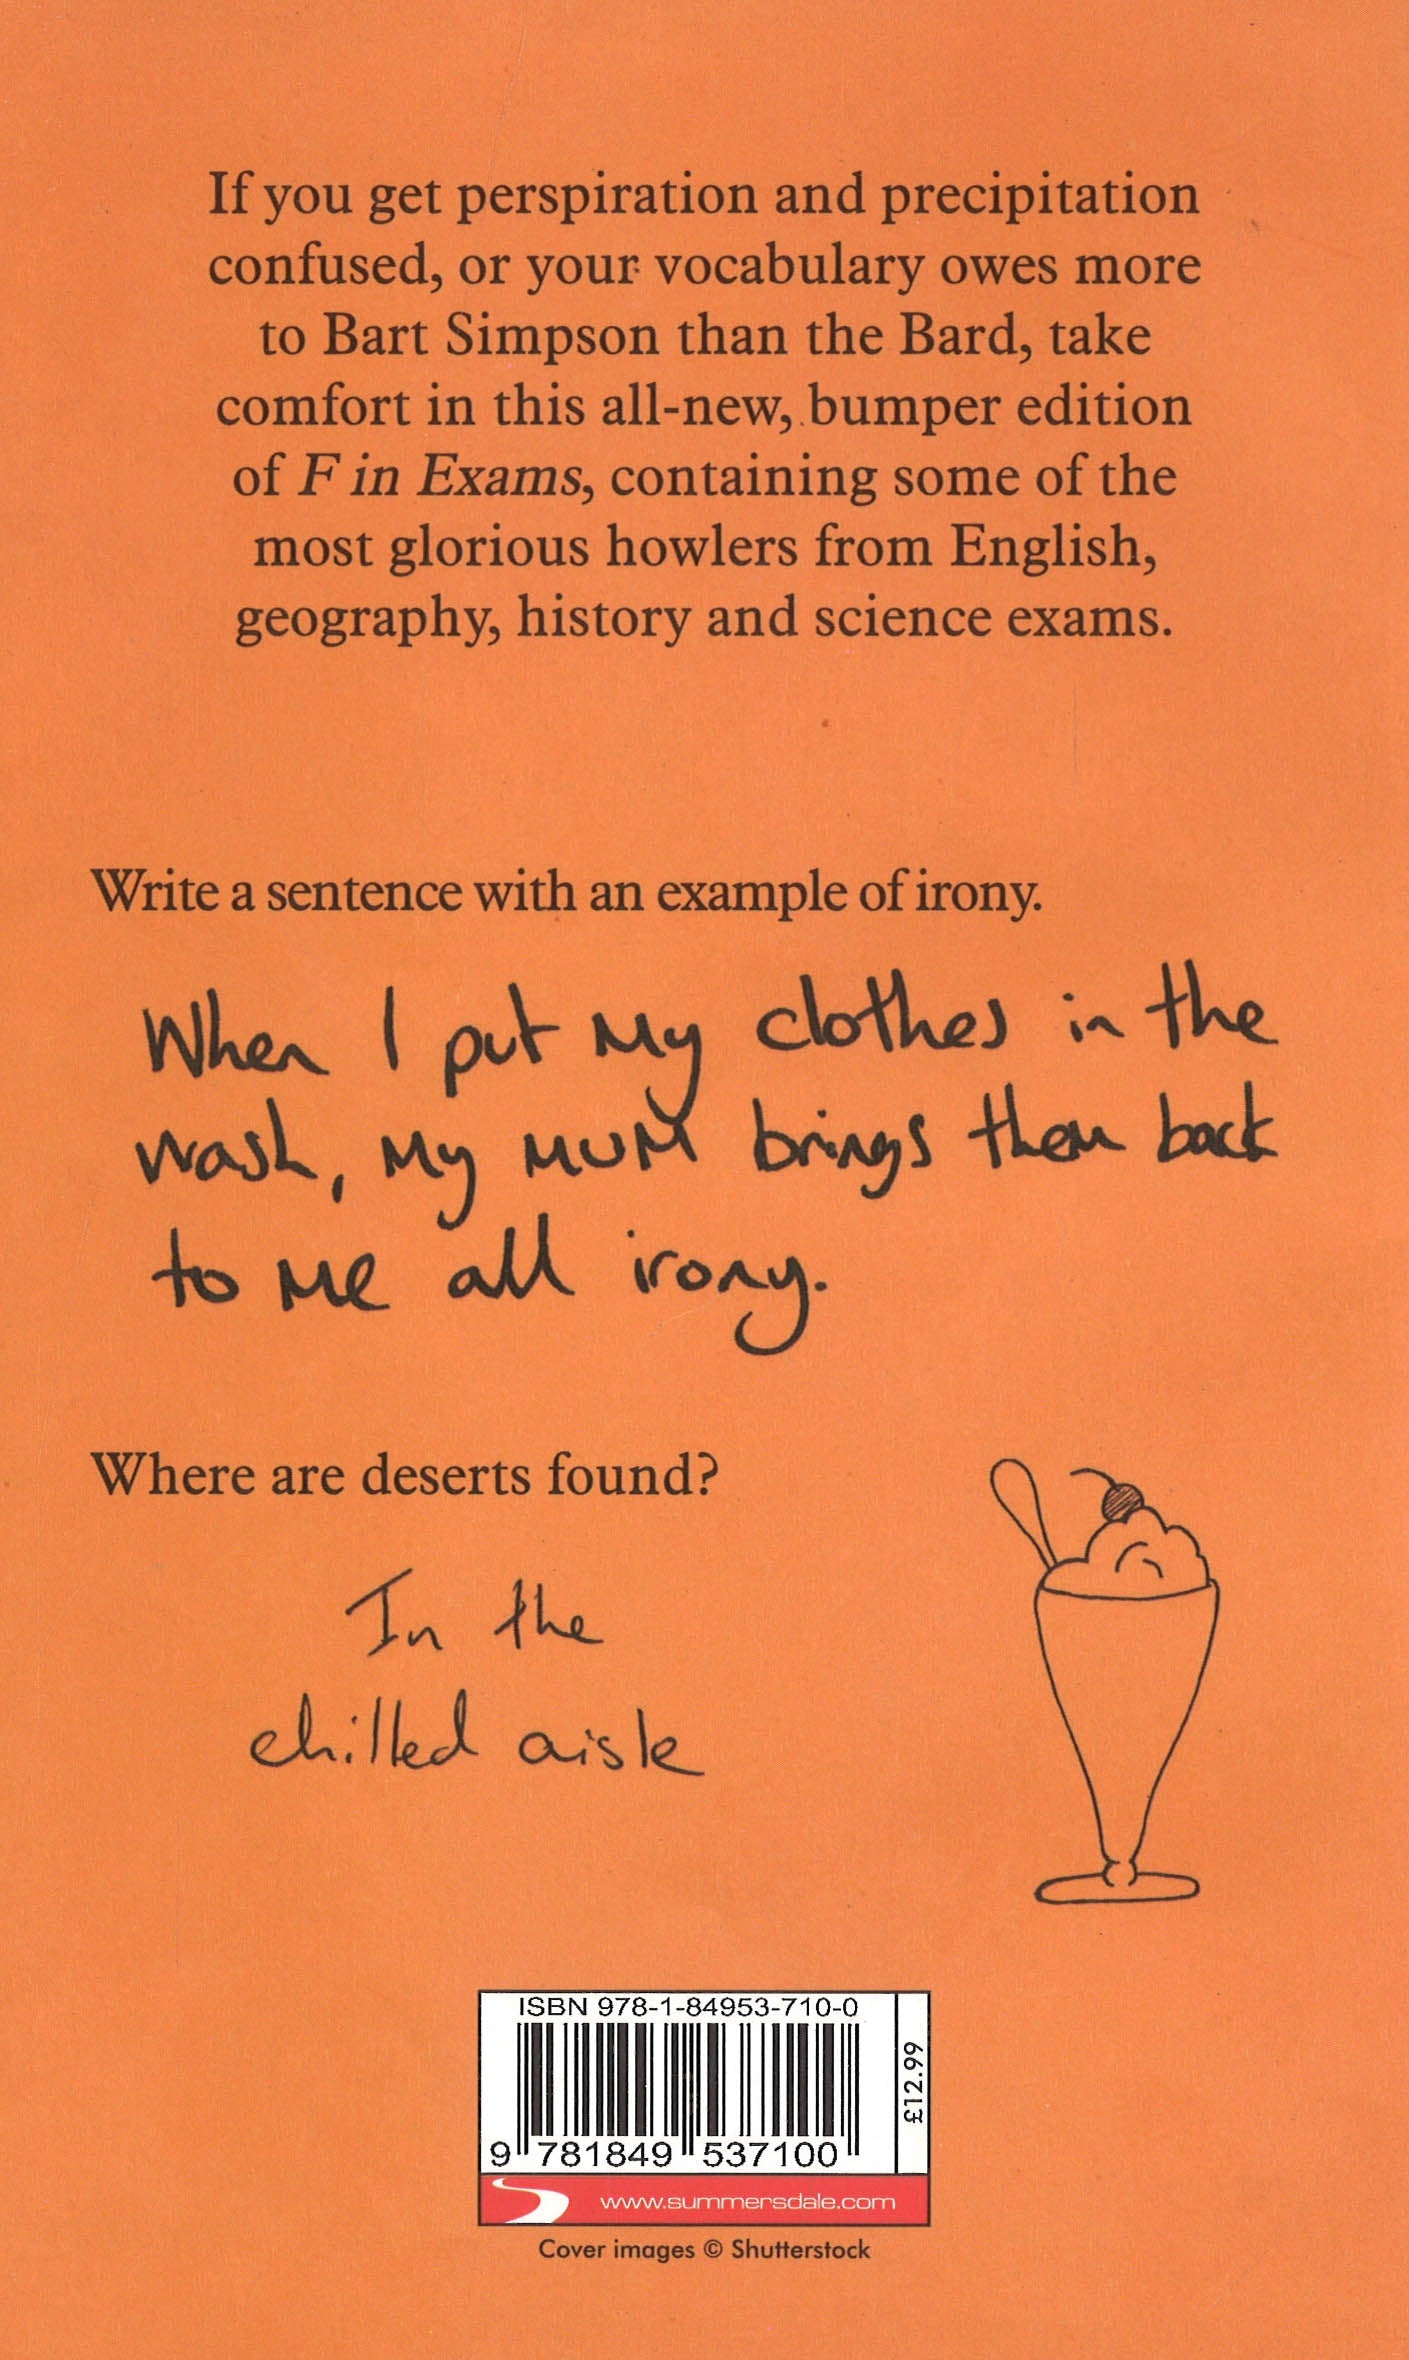 If you get perspiration and precipitation
confused, or your vocabulary owes more
to Bart Simpson than the Bard, take
comfort in this all-new, bumper edition
of F in Exams, containing some of the
most glorious howlers from English,
geography, history and science exams.
Write a sentence with an example of irony.
When I put my clothes in the
wash, my mum brings them back
to me all irony.
Where are deserts found?
In the
chilled aisle
ISBN 978-1-84953-710-0
£12.99
9 781849 537100
www.summersdale.com
Cover images © Shutterstock